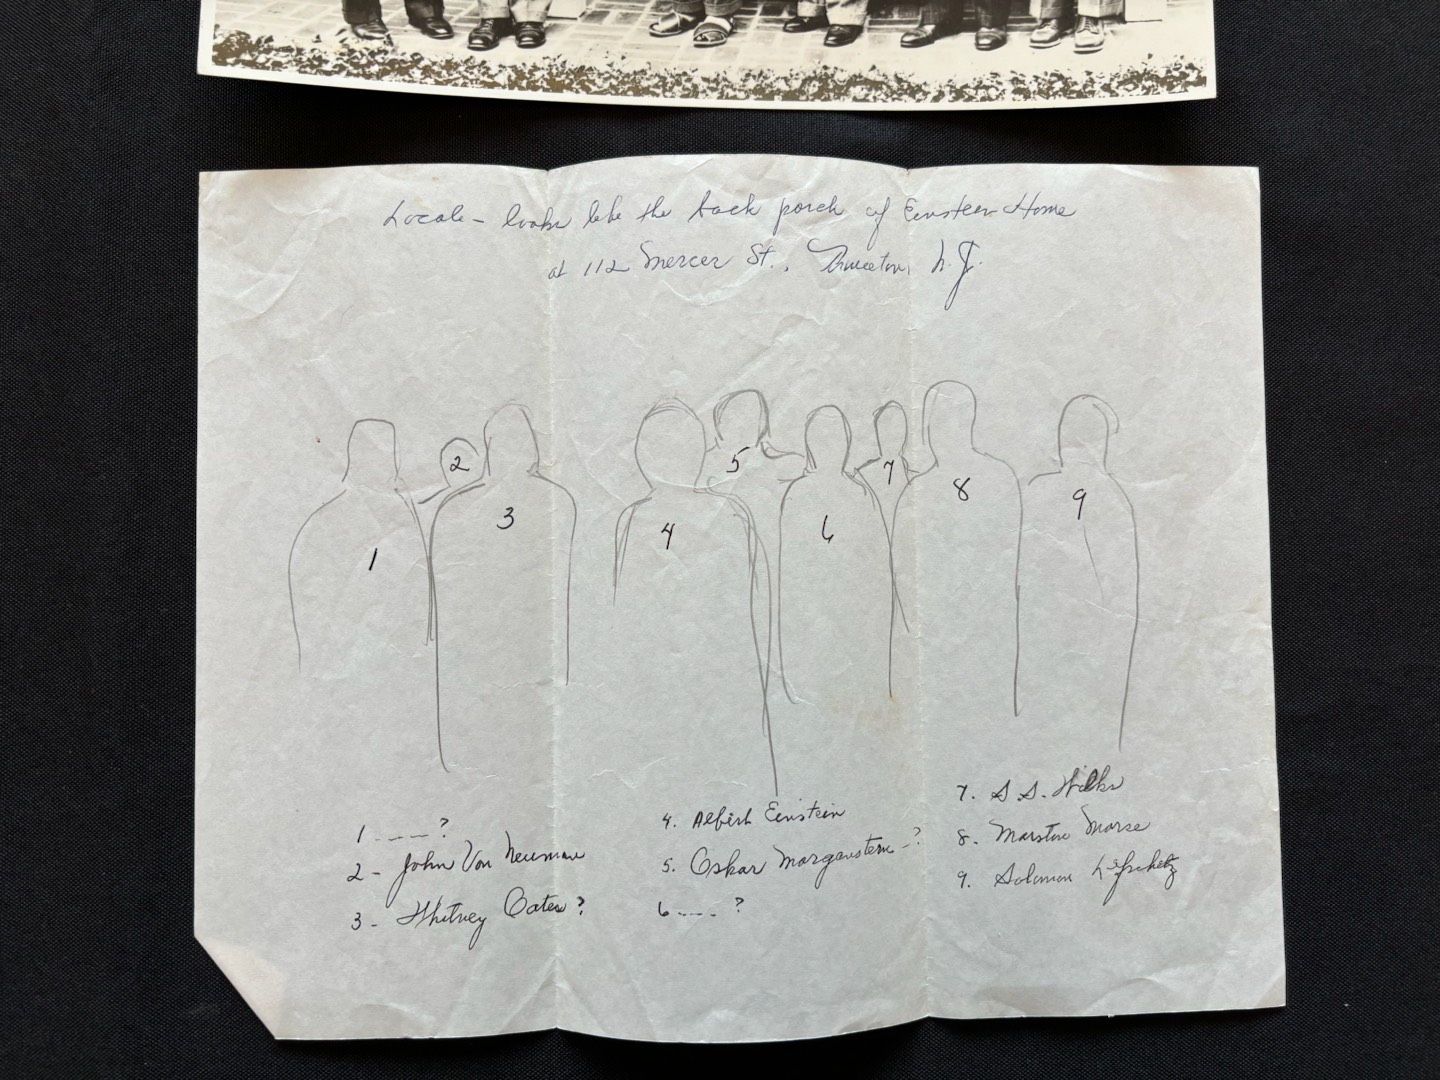 Locale - looks like the back porch of Einstein Home
at 112 Mercer St., Princeton, N.J.
1
2
3
4
5
6
7
8
9
1 ---- ?
2 - John Von Neuman
3 - Whitney Oates?
4. Albert Einstein
5. Oskar Morganstern - ?
6 ---- ?
7. S.S. Wilks
8. Marston Morse
9. Solomon Lefschetz